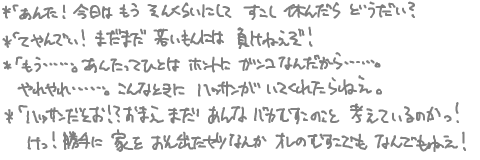 *「あんた！今日は もう そんくらいにして すこし 休んだら どうだい？
*「てやんでい！まだまだ 若いもんには 負けねえぞ！
*「もう……。あんたってひとは ホントに ガンコなんだから……。
やれやれ……。こんなときに ハッサンが いてくれたらねえ。
*「ハッサンだとお！？おまえ まだ あんな バカむすこのこと 考えているのかっ！
けっ！勝手に 家を おん出たやつなんか オレのむすこでも なんでもねえ！